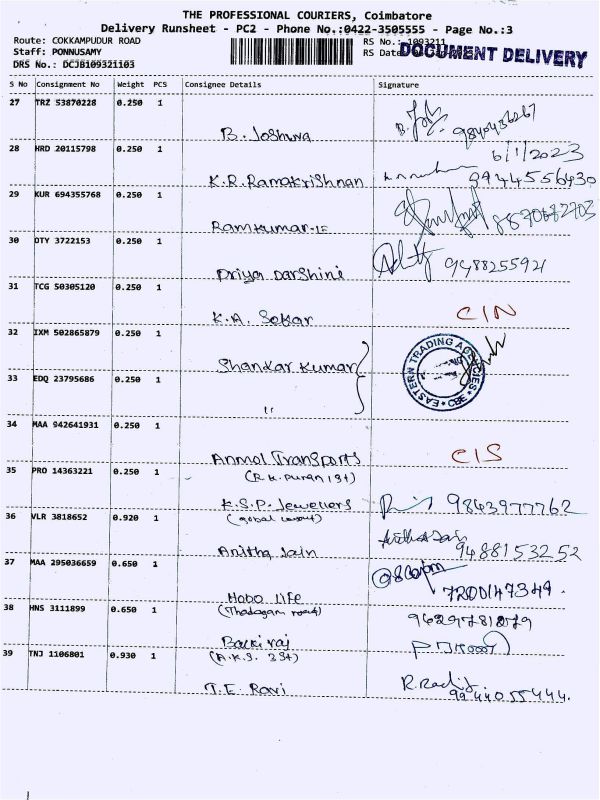 THE PROFESSIONAL COURIERS, Coimbatore
Delivery Runsheet - PC2 - Phone No.:0422-3505555 - Page No.:3
Route: COKKAMPUDUR ROAD
RS No.: 1093211
Staff: PONNUSAMY
RS Date
DOCUMENT DELIVERY
DRS No.: DCJB109321103
S No Consignment No Weight PCS Consignee Details Signature
27 TRZ 53870228 0.250 1
B. Joshuva
28 HRD 20115798 0.250 1
6/1/2023
K.R. Ramakrishnan 9944556430
29 KUR 694355768 0.250 1
Ramkumar
30 DTY 3722153 0.250 1
Priya Darshini 9488255921
31 TCG 50305120 0.250 1
K.A. Sekar CIN
32 IXM 502865879 0.250 1
Shankar Kumar
EASTERN TRADING AGENCIES CBE
33 EDQ 23795686 0.250 1
"
34 MAA 942641931 0.250 1
Anmol Transports CIS
35 PRO 14363221 0.250 1
(R.K. Puram 1st)
K.S.P. Jewellers 9843977762
36 VLR 3818652 0.920 1
Anitha Jain 9488153252
37 MAA 295036659 0.650 1
Hobo Life 7200147349.
38 HNS 3111899 0.650 1
(Thadagam road)
39 TNJ 1106801 0.930 1
(A.K.S. 3St)
T.E. Ravi 9944055444.